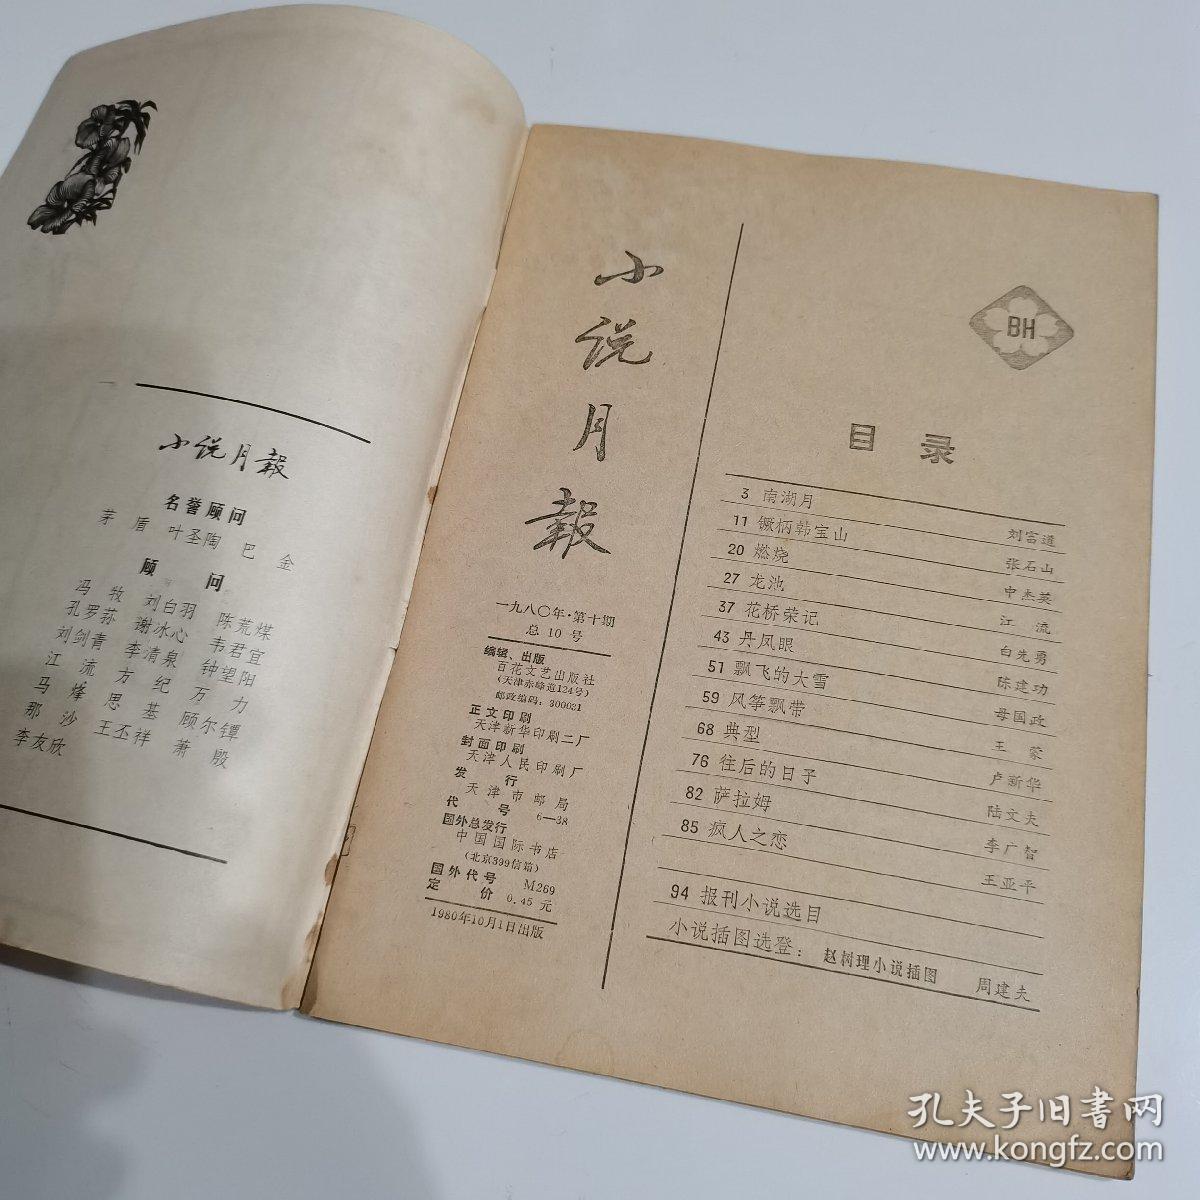 小说月報
名誉顾问
茅盾 叶圣陶 巴金
顾问
冯牧 刘白羽 陈荒煤
孔罗荪 谢冰心 韦君宜
刘剑青 李清泉 钟望阳
江流 方纪 万力
马烽 思基 顾尔镡
那沙 王丕祥 萧殷
李友欣
小说月報
一九八〇年·第十期
总10号
编辑、出版
百花文艺出版社
(天津赤峰道124号)
邮政编码:300021
正文印刷
天津新华印刷二厂
封面印刷
天津人民印刷厂
发行
天津市邮局
代号 6—38
国外总发行
中国国际书店
(北京399信箱)
国外代号 M269
定价 0.45元
1980年10月1日出版
BH
目录
3 南湖月 刘富道
11 镢柄韩宝山 张石山
20 燃烧 中杰英
27 龙池 江流
37 花桥荣记 白先勇
43 丹凤眼 陈建功
51 飘飞的大雪 母国政
59 风筝飘带 王蒙
68 典型 卢新华
76 往后的日子 陆文夫
82 萨拉姆 李广智
85 疯人之恋 王亚平
94 报刊小说选目
小说插图选登:赵树理小说插图 周建夫
孔夫子旧书网
www.kongfz.com